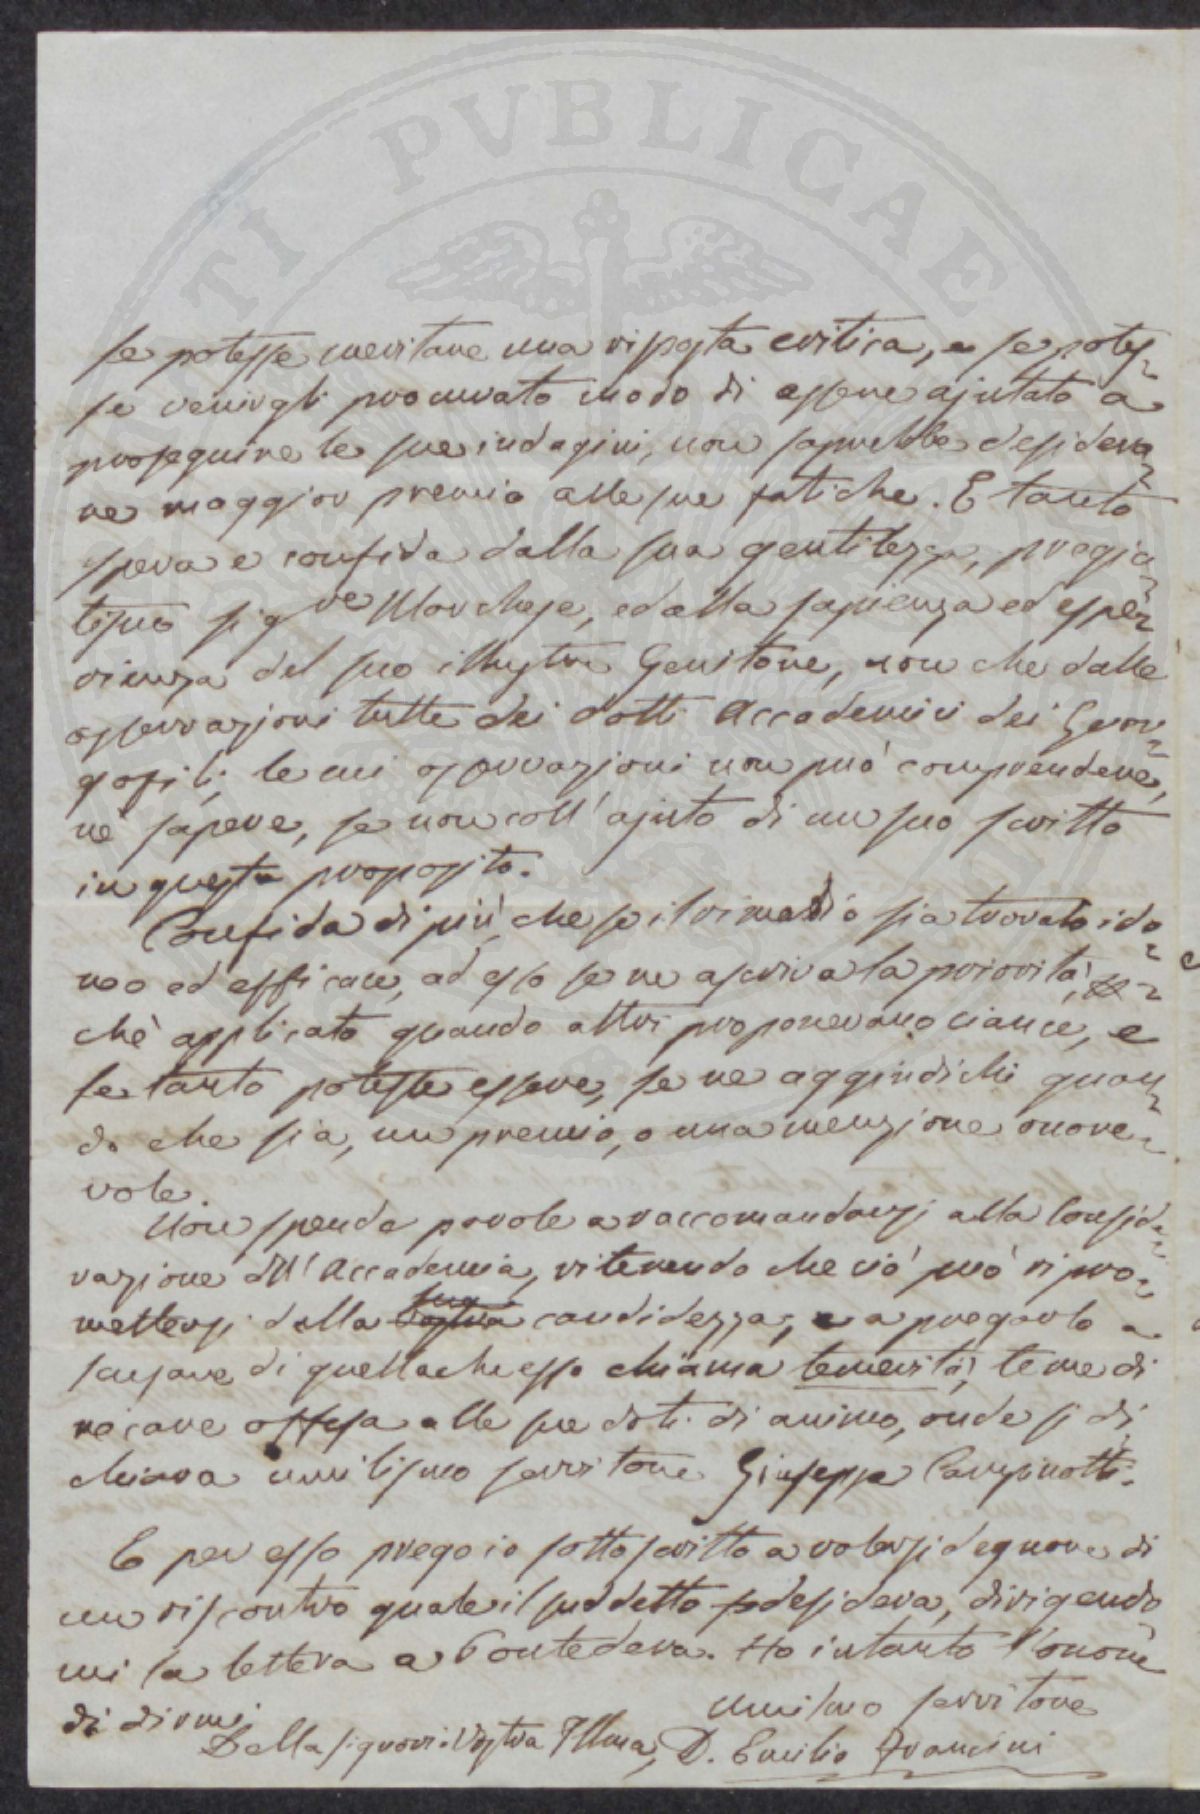 PVBLICAE
se potesse meritare una risposta critica, e se potes=
se venirgli procurato modo di essere ajutato a
proseguire le sue indagini, non saprebbe desidera=
re maggior premio alle sue fatiche. E tanto
spera e confida dalla sua gentilezza, pregia=
tismo sig.re Marchese, ed alla sapienza ed espe=
rienza del suo illustre Genitore, non che dalle
osservazioni tutte dei dotti Accademici dei Geor=
gofili, le cui osservazioni non può comprendere,
nè sapere, se non coll' ajuto di un suo scritto
in questo proposito.
Confida di più, che se il rimedio sia trovato ido=
neo ed efficace, ad esso se ne ascriva la priorità,
chè applicato quando altri proponevano ciance, e
se tanto potesse essere, se ne aggiudichi quan=
do che sia, un premio, o una menzione onore=
vole.
Non spende parole a raccomandarsi alla Conside=
razione dell' Accademia, ritenendo che ciò può ripro=
mettersi dalla sua candidezza, e a pregarlo a
scusare di quella che esso chiama temerità, teme di
recare offesa alle sue doti di animo, onde si di=
chiara umilismo servitore Giuseppe Campinotti.
E per esso prego io sottoscritto a volersi degnare di
un riscontro quale il suddetto desidera, dirigendo
mi la lettera a Pontedera. Ho intanto l'onore
di dirmi
Della Signoria Vostra Illma,
Umilmo servitore
D. Emilio Francini